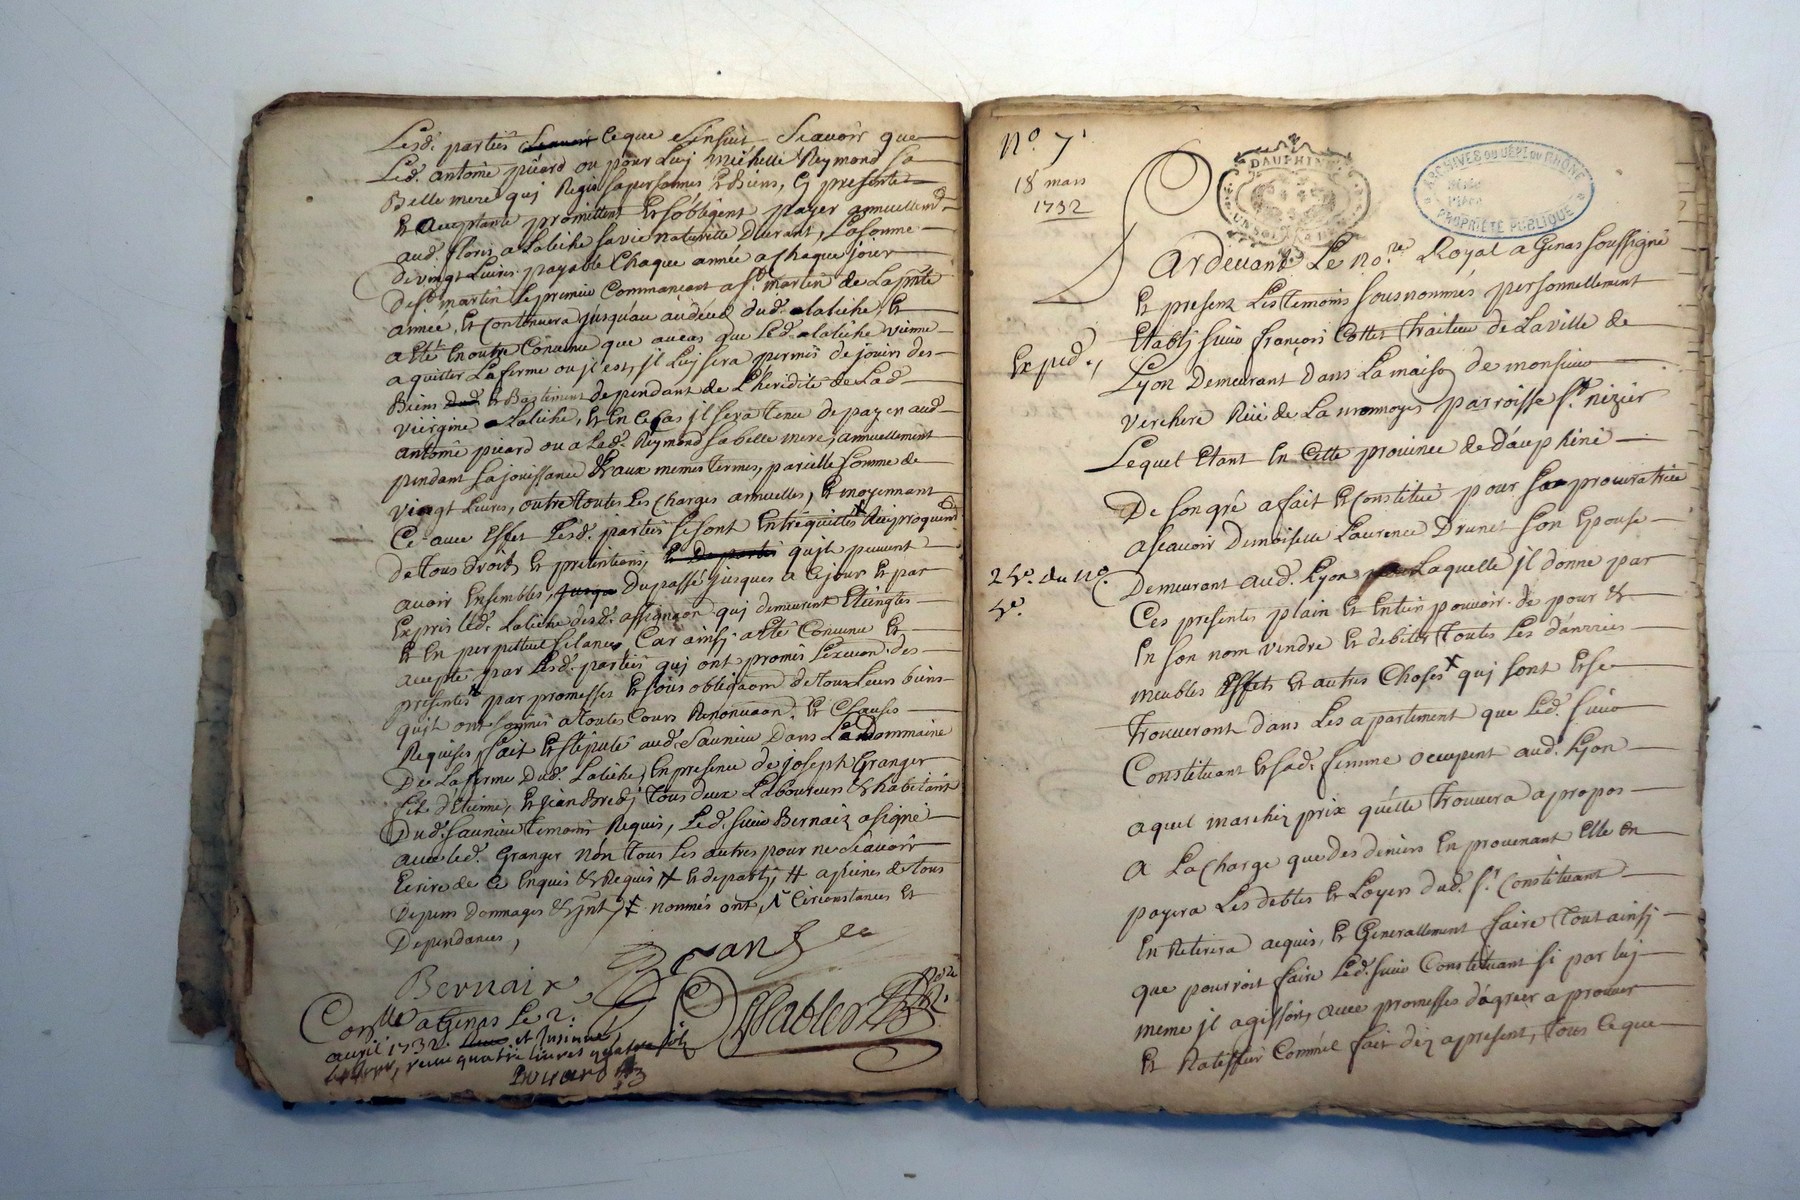 Lesd. parties Scavoir ce que s'ensuit Scavoir que
Led. antoine picard ou pour Luy michelle Reymond sa
Belle mere quj Regit sa personnes Et Biens, Cy presente
Et aceptante promittent Et s'obligent payer annuellemt
aud. floris a Laliche sa vie naturelle Durant, La somme
de vingt Livres payable Chaque année a Chaque jour
De st martin Le premier Commancant a st martin de La pnte
année, Et Continuera jusqu'au deced dud. alatiche, Et
a Eté En outre Convenu que au cas que Led. alatiche vienne
a quitter La ferme ou jl est, jl Luy sera permis de jouir des
Biens dud Et Bastiment dependant de L'heridité de Lad
viergine alatiche, Et En ce Cas jl sera Tenu de payer aud
antoine picard ou a Lad. Reymond sa belle mere, annuellement
pendant sa jouissance Et aux memes termes, pareille somme de
vingt Livres, outre toutes Les Charges annuelles, Et moyennant
Ce avec Effet Lesd. parties se sont Entrequittés Reciproquemt
de Tous droits Et pretentions, Et De partie qu'jls peuvent
avoir Ensembles, jusqu Du passé jusques a Ce jour Et par
Exprés Led. Latiche desd. assignaon quj demeurent Eteingtes
Et En perpettuel silance, Car ainsj a Eté Convenu Et
acepté par Lesd. parties quj ont promis L'execuon des
presentes par promesses Et sous obligaon de tous Leurs biens
qu'jls ont soumis a toutes Cours Renonciaon. Et Clauses
Requises, fait Et stipulé aud. Saunieu Dans La dommaine
De La ferme dud. Latiche, En presence de joseph Granger
fils d'Etienne, Et jean Bredj Tous deux Laboureurs Et habitants
Dud. Saunieu Temoins Requis, Led. sieur Bernaix a signé
avec led. Granger Non Tous Les autres pour ne scavoir
Ecrire de ce Enquis Et Requis Et departj a peines de tous
Depens dommages Et jnts nommés ont, Circonstances Et
Dependances,
Bernaix
Granger
Conllé a Genas Le 2.
avril 1732. et Insinué
reçu quatre livres quatre sols
N° 7
18 mars
1732
DAUPHINE
UN SOL
ARCHIVES DU DÉPT DU RHÔNE
PROPRIÉTÉ PUBLIQUE
Pardevant Le Nore Royal a Genas soussigné
Et present Les Temoins sousnommés personnellement
Etablj sieur françois Cottet Traiteur de La ville de
Exped.,
Lyon Demeurant dans La maison de monsieur
verchere Rüe de La monnoye parroisse st. nizier
Lequel Etant En Cette province de dauphiné
De son gré a fait Et Constitué pour sa procuratrice
ascavoir Demoiselle Laurence Drunet son Epouse
Demeurant aud. Lyon Laquelle jl donne par
Ces presentes plain Et Entier pouvoir de pour Et
En son nom vendre Et debiter Toutes Les danrrées
meubles Effets Et autres Choses quj sont Et se
Trouveront dans Les apartement que Led. sieur
Constituant Et sad. femme occupent aud. Lyon
a quel marchez prix qu'elle Trouvera a propos
A La Charge que des deniers En provenant Elle En
payera Les debtes Et Loyers dud. sr. Constituant
En Retirera acquis, Et Generallement faire Tout ainsj
que pourroit faire Led. sieur Constituant si par luj
meme jl agissoit, avec promesses d'agréer aprouver
Et Ratiffier Comm'jl fait dez a present, Tous Ce que